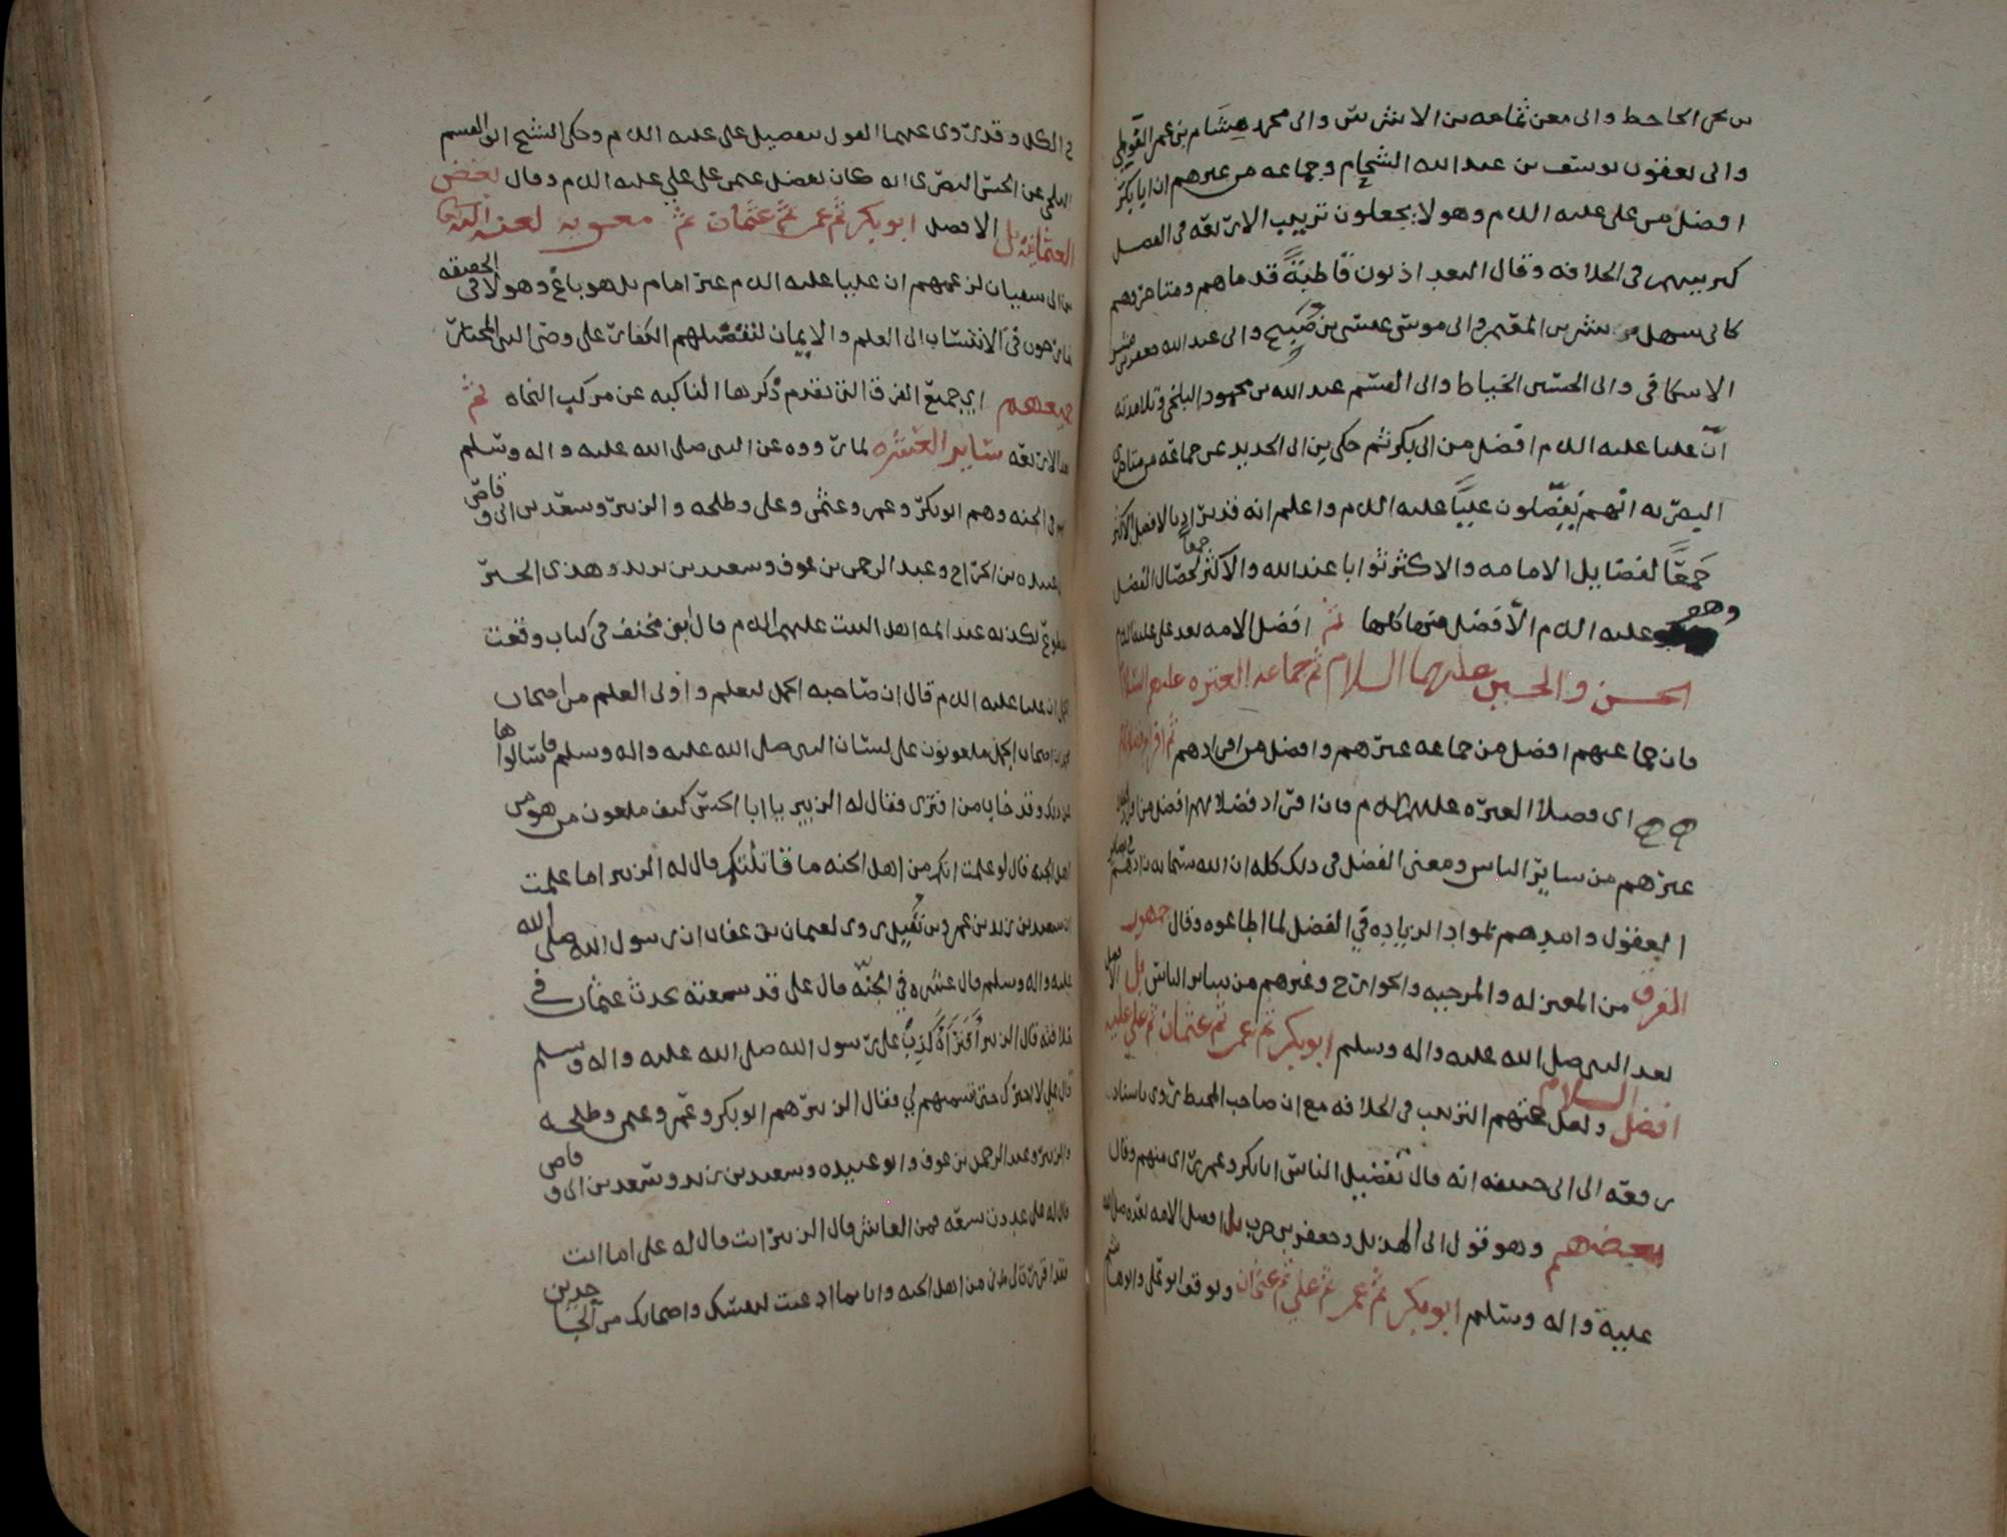 بن بحر الجاحظ والى معن ثمامه بن الاشرس والى محمد هشام بن عمر الفوطي
والى يعقوب يوسف بن عبد الله الشحام وجماعه من غيرهم ان ابا بكر
افضل من علي عليه الل م وهولا يجعلون ترتيب الاربعه في الفضل
كترتيبهم في الخلافه وقال البغداذيون قاطبةً قدماهم ومتاخروهم
كابي سهل بشر بن المعتمر وابي موسى عيسى بن صبيح وابي عبد الله جعفر بن مبشر
الاسكافي وابي الحسين الخياط وابي القسم عبد الله بن محمود البلخي وتلامذته
انّ عليا عليه الل م افضل من ابي بكر ثم حكى بن ابي الحديد عن جماعه من متاخري
البصريه انهم يفضّلون عليًا عليه الل م واعلم انه قد يراد بالافضل الاكثر
جَمعًا لفضايل الامامه والاكثر ثوابا عند الله والاكثر جمعا لخصال الفضل
وهو عليه الل م الأفضل فيها كلها ثم افضل الامه بعد علي عليه الل م
الحسن والحسين عليهما السلام ثم جماعه العتره عليهم السلام
فان جماعتهم افضل من جماعه غيرهم وافضل من افرادهم ثم افراد فضلا
هم اى فضلا العتره عليهم الل م فان افراد فضلايهم افضل من افراد
غيرهم من ساير الناس ومعنى الفضل في ذلك كله ان الله سبحانه زادهم في
العقول وامدهم بمواد الزياده في الفضل لما اطاعوه وقال جمهور
الفرق من المعتزله والمرجيه والخوارج وغيرهم من ساير الناس بل الافضل
بعد النبي صلى الله عليه واله وسلم ابو بكر ثم عمر ثم عثمان ثم علي عليه
السلام
افضل ولعل عندهم الترتيب في الخلافه مع ان صاحب المحيط روى باسناد
رفعه الى ابي حنيفه انه قال تفضيل الناس ابا بكر وعمر راى منهم وقال
بعضهم وهو قول ابي الهذيل وجعفر بن حرب بل افضل الامه بعده صلى الله
عليه واله وسلم ابو بكر ثم عمر ثم علي ثم عثمان وتوقف ابو علي وابو هاشم
في الكل وقد روى عنهما القول بتفضيل علي عليه الل م وحكى الشيخ ابو القسم
البلخي عن الحسن البصري انه كان يفضل عمر على علي عليه الل م وقال بعض
العثمانيه بل الافضل ابو بكر ثم عمر ثم عثمان ثم معويه لعنه الله
بن ابي سفيان لزعمهم ان عليا عليه الل م غير امام بل هو باغ وهولا في الحقيقه
خارجون في الانتساب الى العلم والايمان لتفضيلهم الكفار على وصي النبي المختار
جميعهم اي جميع الفرق التي تقدم ذكرها الناكبه عن مركب النجاه ثم
بعد الاربعه ساير العشره لما رووه عن النبي صلى الله عليه واله وسلم
انهم في الجنه وهم ابو بكر وعمر وعثمن وعلي وطلحه والزبير وسعد بن ابي وقاص
وابو عبيده بن الجراح وعبد الرحمن بن عوف وسعيد بن زيد وهذى الخبر
مقطوع بكذبه عند ايمه اهل البيت عليهم الل م قال ابو مخنف في كتاب وقعت
الجمل ان عليا عليه الل م قال ان صاحبه الجمل لتعلم واولى العلم من اصحاب
محمد ان اصحاب الجمل ملعونون على لسان النبي صلى الله عليه واله وسلم فاسالوها
عن ذلك وقد خاب من افترى فقال له الزبير يا ابا الحسن كيف ملعون من هو من
اهل الجنه قال لو علمت انكم من اهل الجنه ما قاتلتكم قال له الزبير اما علمت
ان سعيد بن زيد بن عمرو بن نُفَيل روى لعثمان بن عفان ان رسول الله صلى الله
عليه واله وسلم قال عشره في الجنّة قال علي قد سمعته يحدث عثمان في
خلافته قال الزبير أفَتَرَاهُ كذِبَ على رسول الله صلى الله عليه واله وسلم
قال علي لا اخبرك حتى تسميهم لي فقال الزبير هم ابو بكر وعمر وعثمن وطلحه
والزبير وعبد الرحمن بن عوف وابو عبيده وسعيد بن زيد وسعد بن ابي وقاص
قال له علي عددت تسعه فمن العاشر قال الزبير انت قال له علي اما انت
فقد اقررت لي اني من اهل الجنه وانا بما ادعيت لنفسك واصحابك من الجاحدين